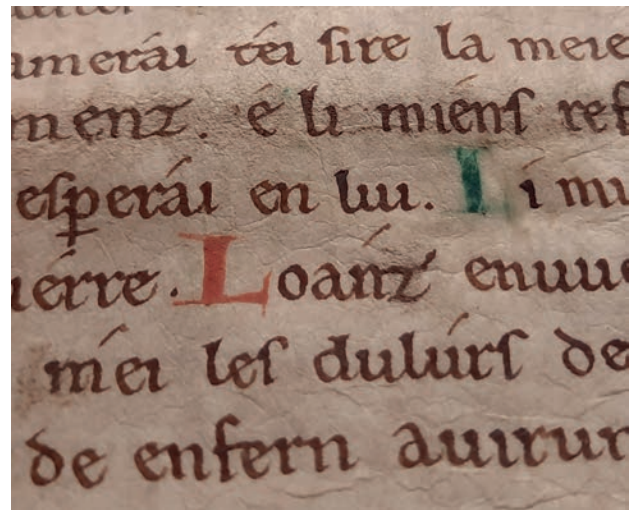 amerái téi sire la meie
menz. é li miens ref
esperái en lui. Li mu
iérre. Loánz enuue
méi les dulúrs de
de enfern auirur